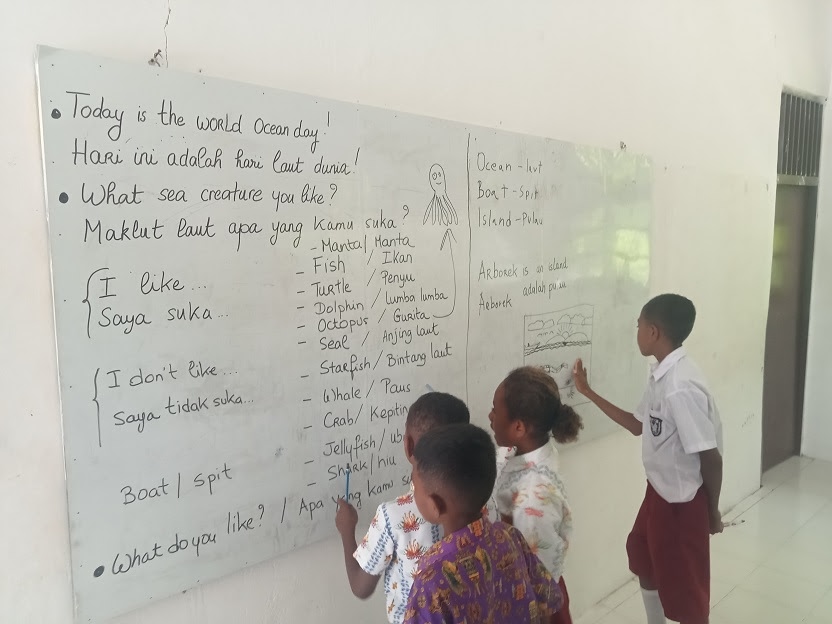 • Today is the world Ocean day!
Hari ini adalah hari laut dunia!
• What sea creature you like?
Maklut laut apa yang kamu suka?
I like ...
Saya suka ...
I don't like ...
Saya tidak suka...
- Manta / Manta
- Fish / Ikan
- Turtle / Penyu
- Dolphin / Lumba lumba
- Octopus / Gurita
- Seal / Anjing laut
- Starfish / Bintang laut
- Whale / Paus
- Crab / Kepitin
- Jellyfish / ub
- Shark / hiu
Boat / spit
• What do you like? / Apa yang kamu
Ocean - laut
Boat - Spit
Island - Pulau
Arborek is an island
Arborek adalah pulau